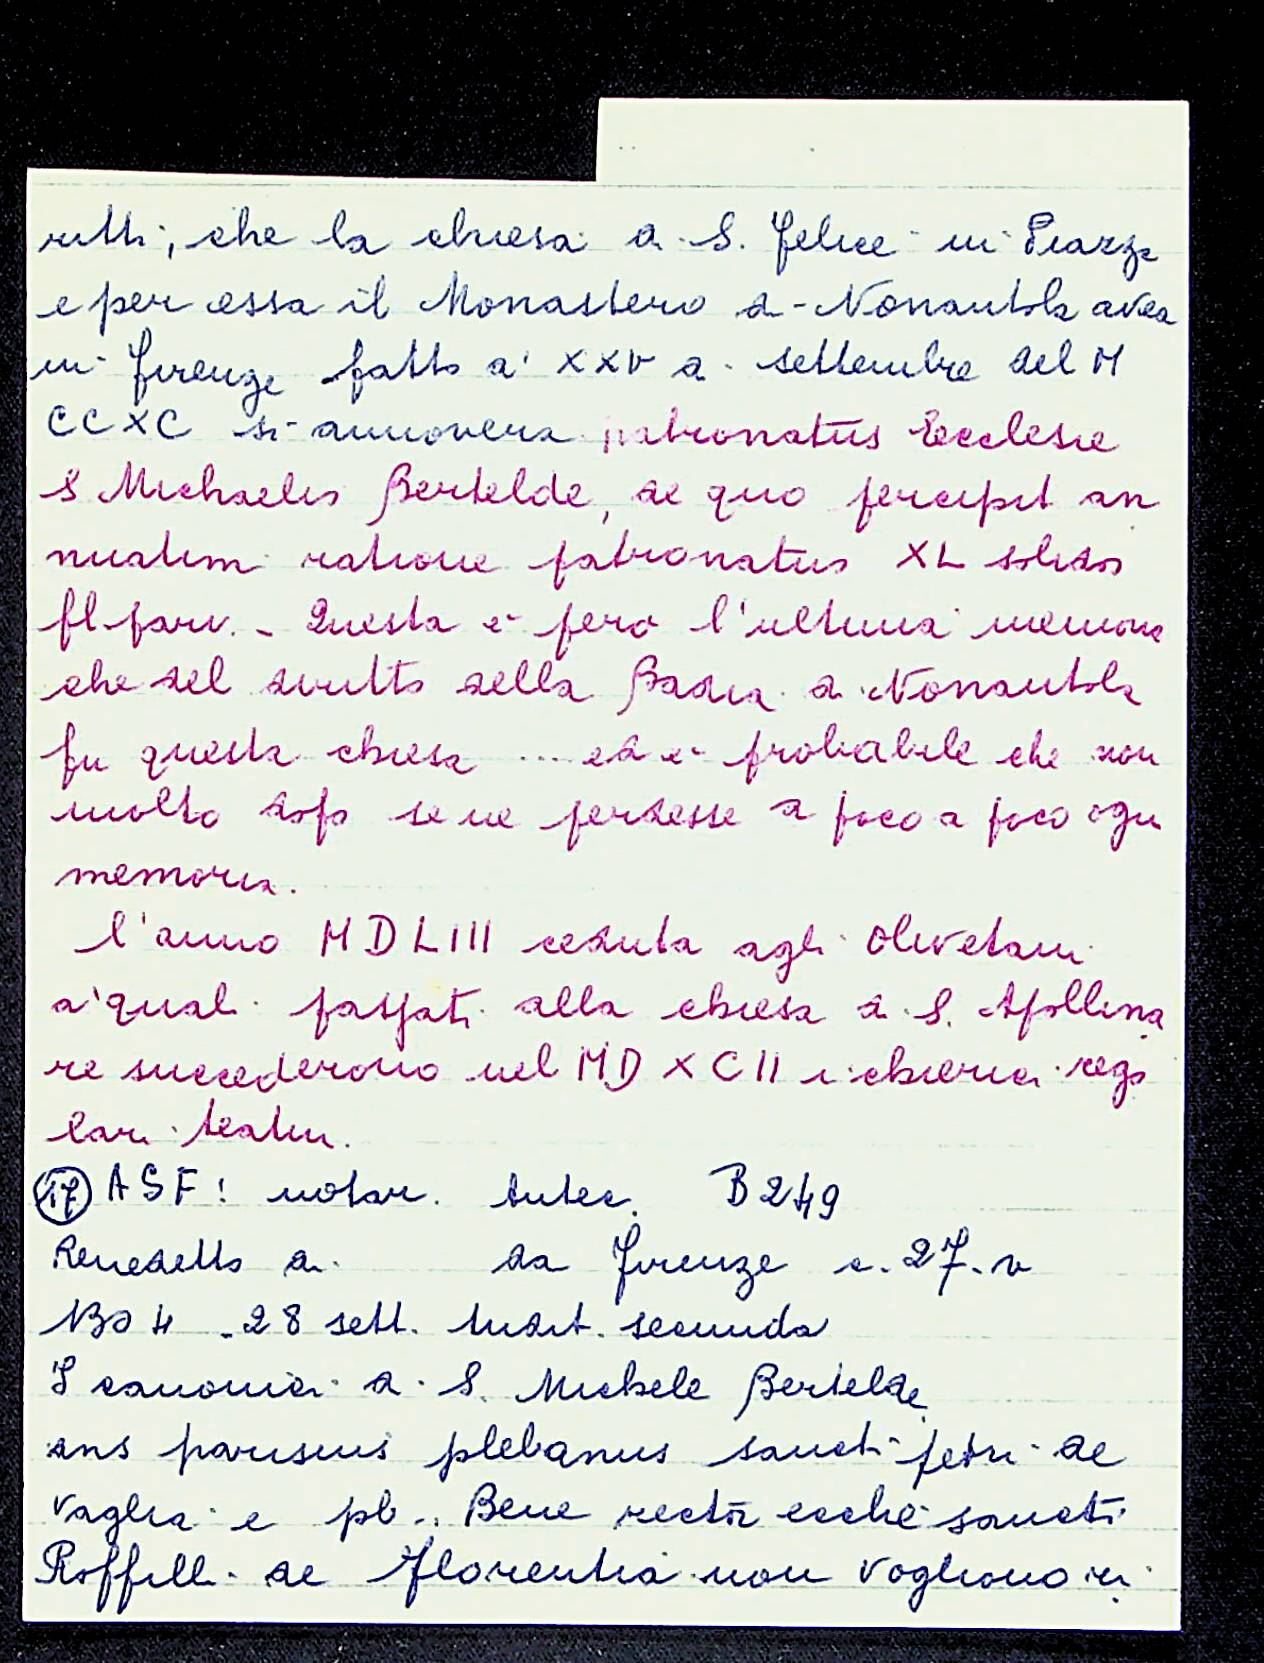 ritti, che la chiesa di S. Felice in Piazza
e per essa il Monastero di Nonantola avea
in Firenze fatto a' XXV di settembre del M
CCXC si annovera patronatus Ecclesie
S Michaelis Bertelde, de quo percipit an
nuatim ratione patronatus XL solidos
fl. parv. - Questa è però l'ultima memoria
che del diritto della Badia di Nonantola
fu questa chiesa ... ed è probabile che non
molto dopo se ne perdesse a poco a poco ogni
memoria.
l'anno MDLIII ceduta agli Olivetani
a' quali passati alla chiesa di S. Apollina
re succederono nel MDXCII i chierici rego
lari teatini.
17 ASF: notar. Antec. B 249
Benedetto di da Firenze c. 27. v
1304 - 28 sett. Indit. secunda
I canonici di S. Michele Bertelde
dns parisius plebanus sancti petri de
Vaglia e pb.. Bene rector ecclie sancti
Roffilli de Florentia non vogliono ri